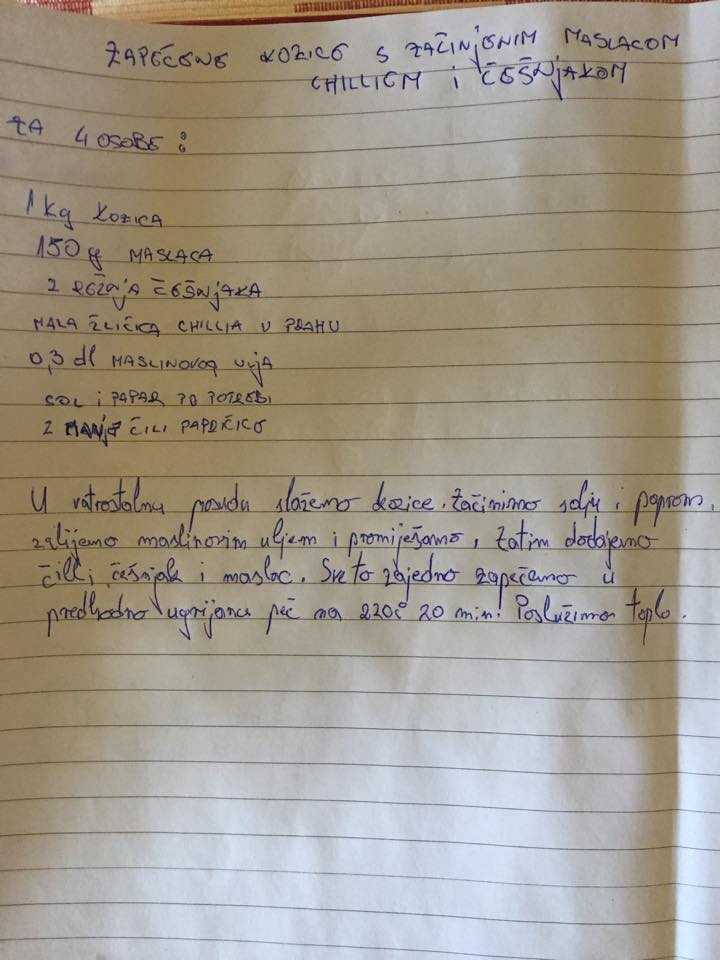 ZAPEČENE KOZICE S ZAČINJENIM MASLACOM
CHILLIEM i ČEŠNjAKOM
ZA 4 OSOBE:
1 kg KOZICA
150 g MASLACA
2 REŽNjA ČEŠNjAKA
MALA ŽLIČICA CHILLIA U PRAHU
0,3 dl MASLINOVOG ULjA
SOL i PAPAR PO POTREBI
2 MANjE ČILI PAPRIČICE
U vatrostalnu posudu slažemo kozice. Začinimo solju i paprom,
zalijemo maslinovim uljem i promiješamo, zatim dodajemo
čilli, češnjak i maslac. Sve to zajedno zapečemo u
predhodno ugrijanu peč na 220c° 20 min! Poslužimo toplo.